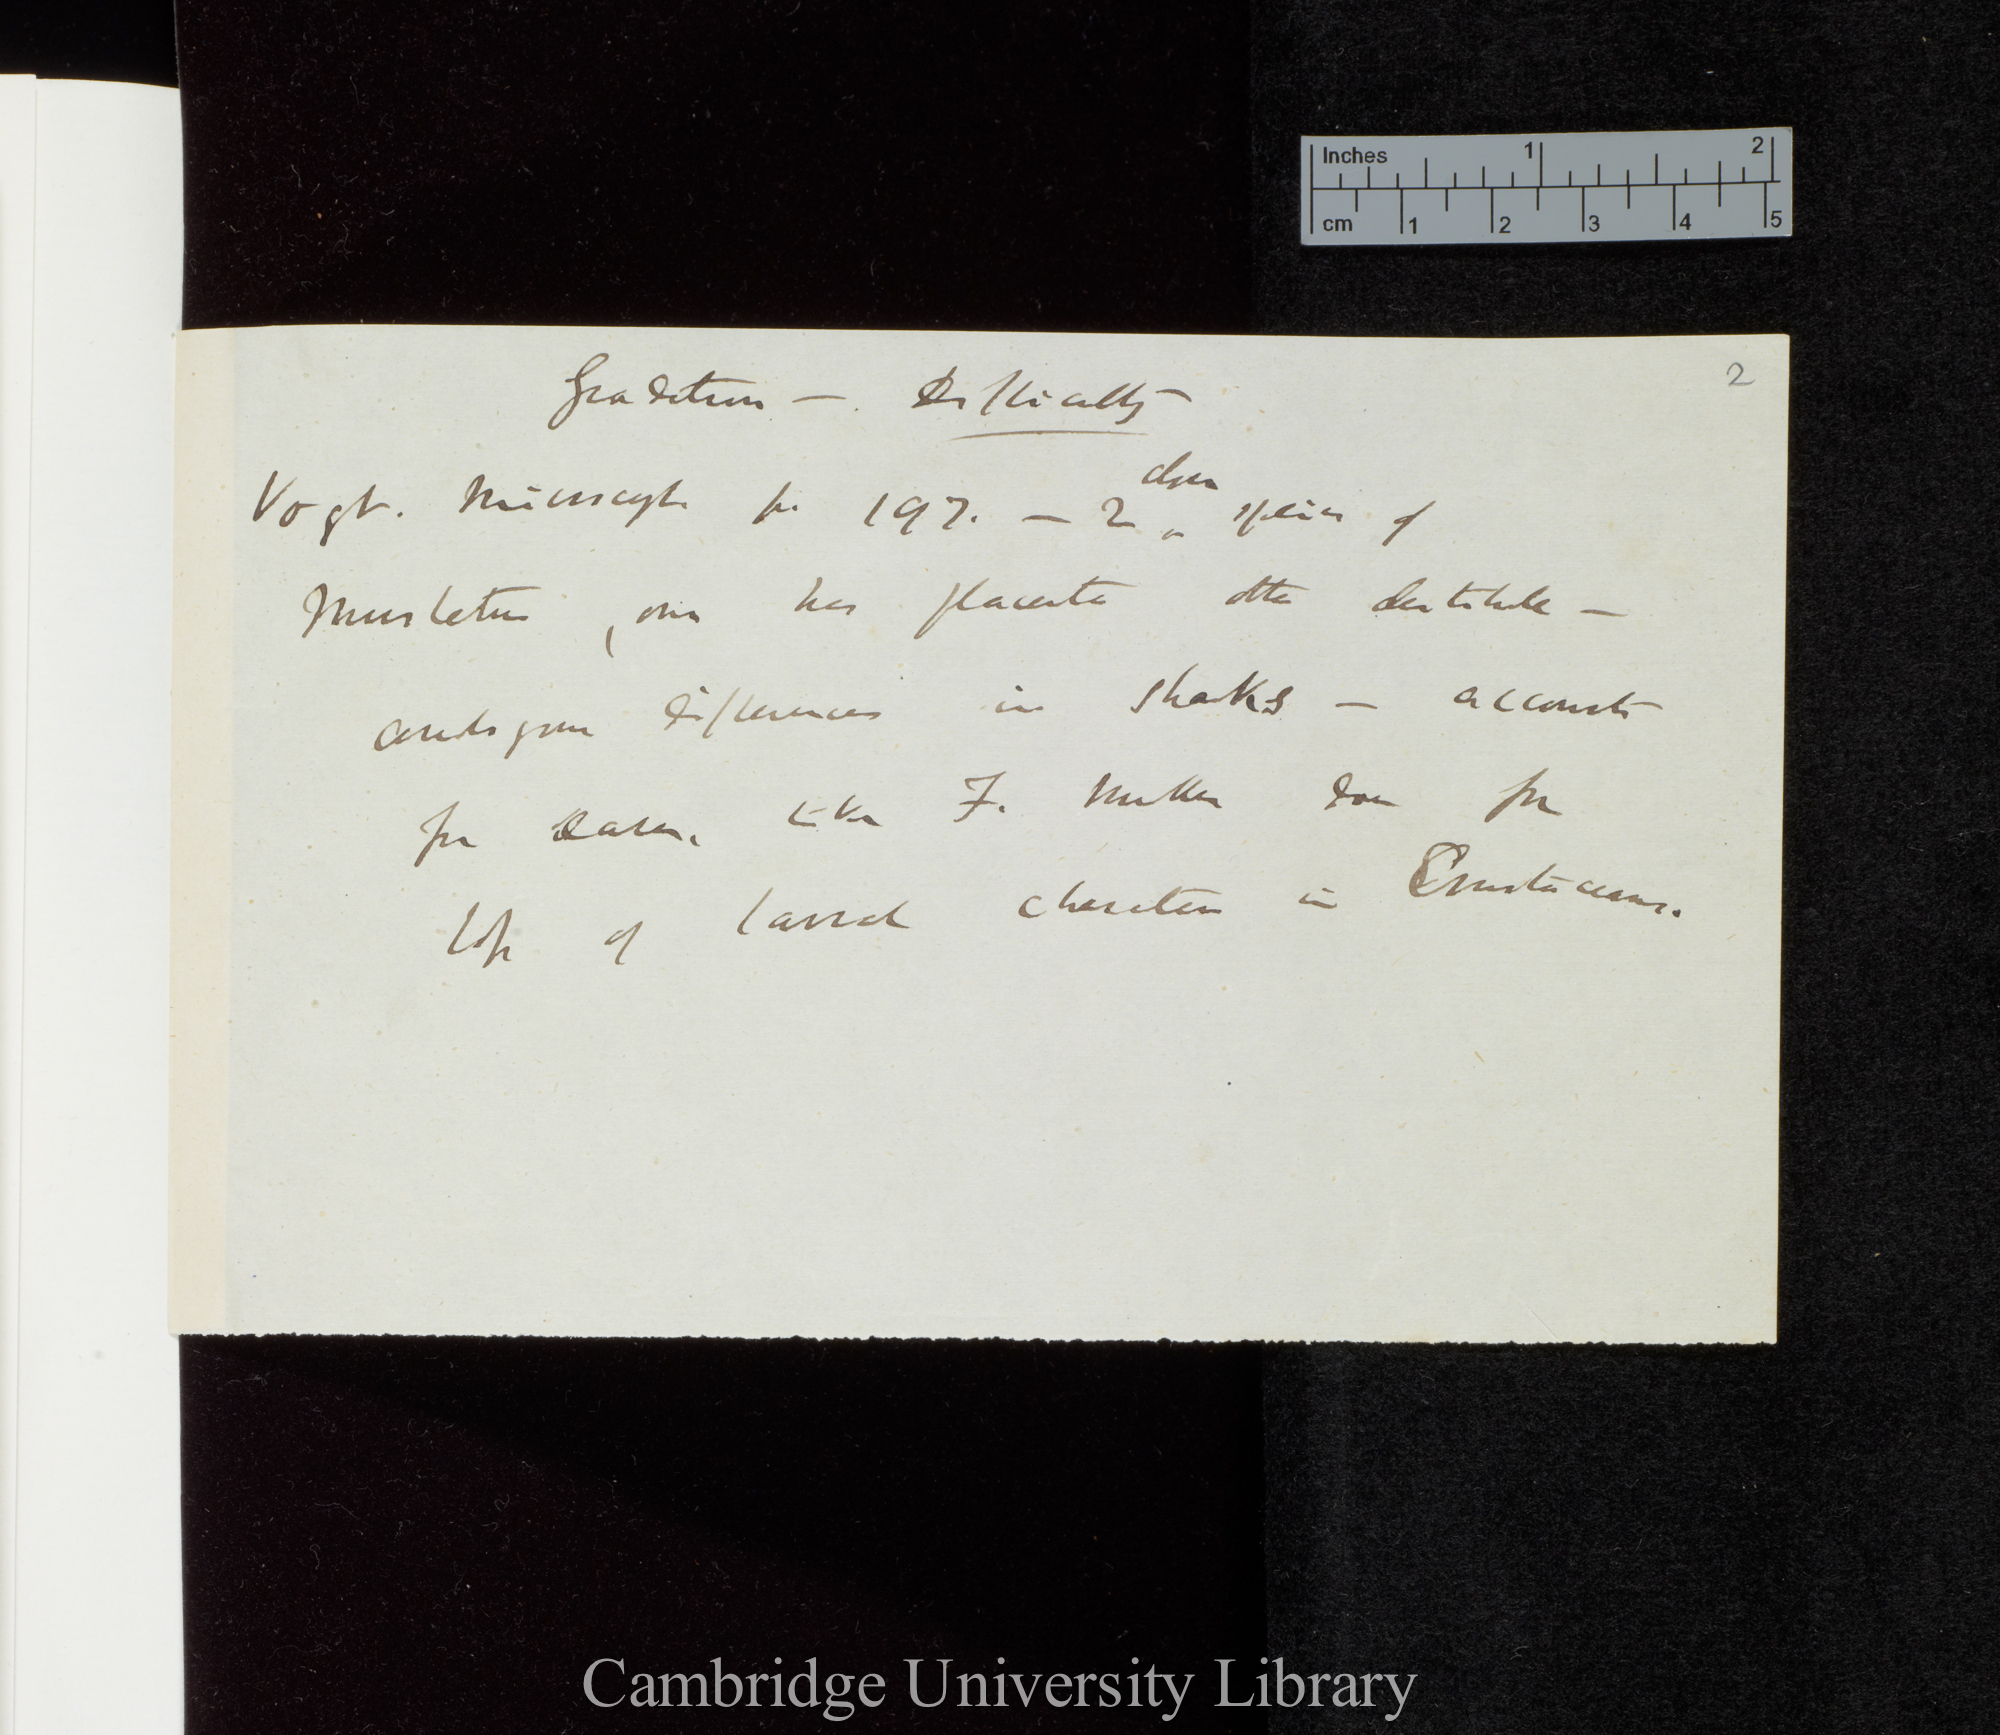 Inches 1 2
cm 1 2 3 4 5
2
Gradation — Difficulty
Vogt. Microceph p. 197. — 2 ^ close species of
Mustelus, one has placenta other destitute —
analogous differences in sharks — accounts
for same, like F. Muller does for
loss of larval characters in Crustaceans.
Cambridge University Library